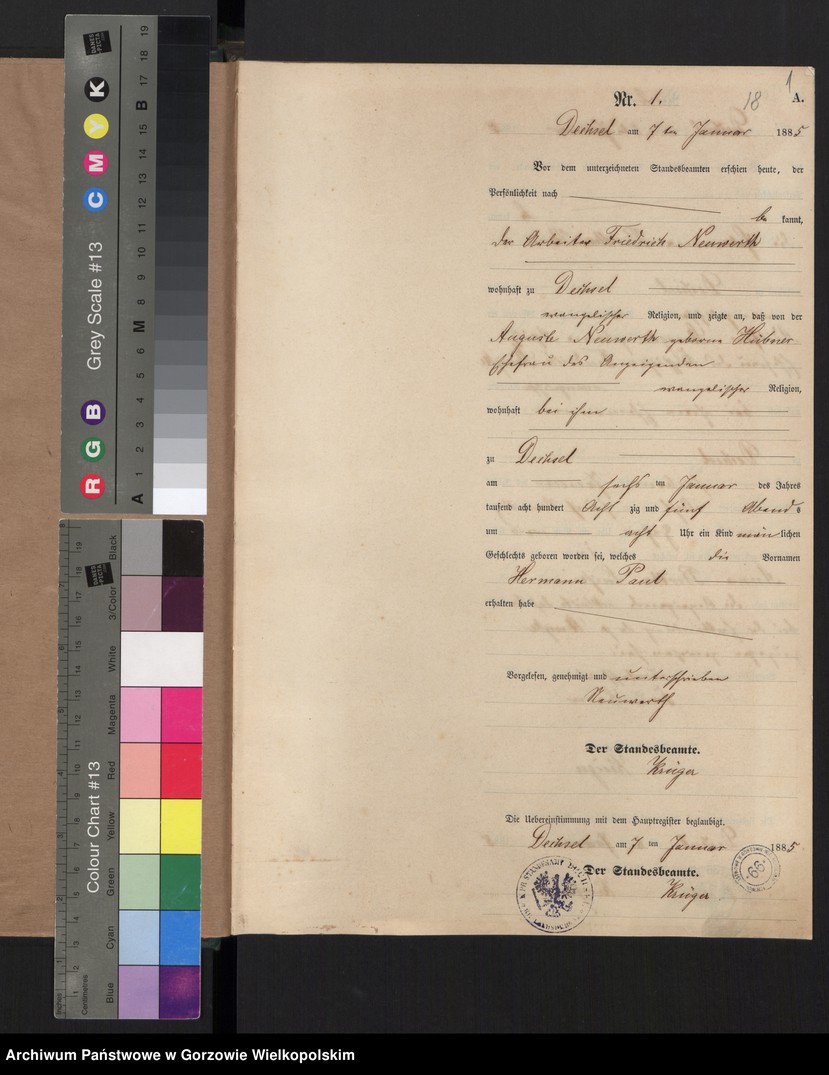 Nr. 1.
18
1
A.
Dechsel am 7 ten Januar 1885
Vor dem unterzeichneten Standesbeamten erschien heute, der
Persönlichkeit nach
be kannt,
der Arbeiter Friedrich Neuwerth
wohnhaft zu Dechsel
evangelischer Religion, und zeigte an, daß von der
Auguste Neuwerth geborene Hübner
Ehefrau des Anzeigenden
evangelischer Religion,
wohnhaft bei ihm
zu Dechsel
am sechs ten Januar des Jahres
tausend acht hundert Acht zig und fünf Abend s
um acht Uhr ein Kind män lichen
Geschlechts geboren worden sei, welches die Vornamen
Hermann Paul
erhalten habe
Vorgelesen, genehmigt und unterschrieben
Neuwerth
Der Standesbeamte.
Krüger
Die Uebereinstimmung mit dem Hauptregister beglaubigt.
Dechsel am 7 ten Januar 1885
Der Standesbeamte.
Krüger
K. PR. STANDESAMT DECHSEL
66
Grey Scale #13
DANES PICTA
R G B C M Y K
A 1 2 3 4 5 6 M 8 9 10 11 12 13 14 15 B 17 18 19
Colour Chart #13
DANES PICTA
Blue Cyan Green Yellow Red Magenta White 3/Color Black
Inches
Centimetres
Archiwum Państwowe w Gorzowie Wielkopolskim